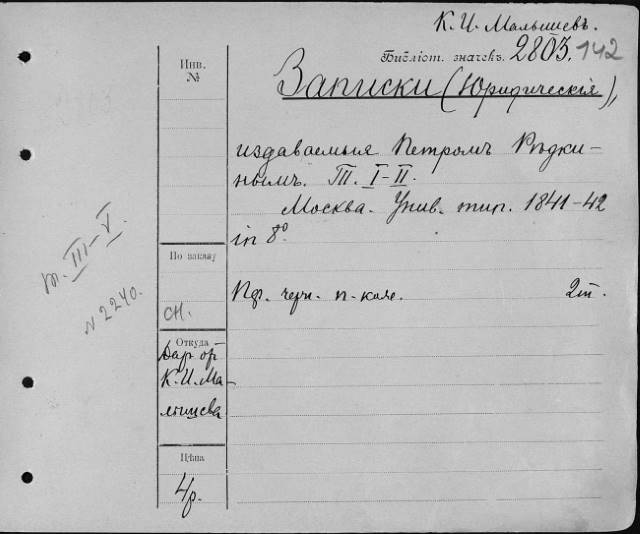 К. И. Малышевъ.
Библіот. значекъ. 2803. 142
Инв. №
Записки (Юридическія),
издаваемыя Петромъ Рѣдки-
нымъ. Т.Т. I-II.
Москва. Унив. тип. 1841-42
in 8°.
т. III-V.
N 2240.
По заказу
СН.
Пф. черн. п-коле.
2т.
Откуда
Даръ отъ
К. И. Ма-
лышева
Цѣна
4р.